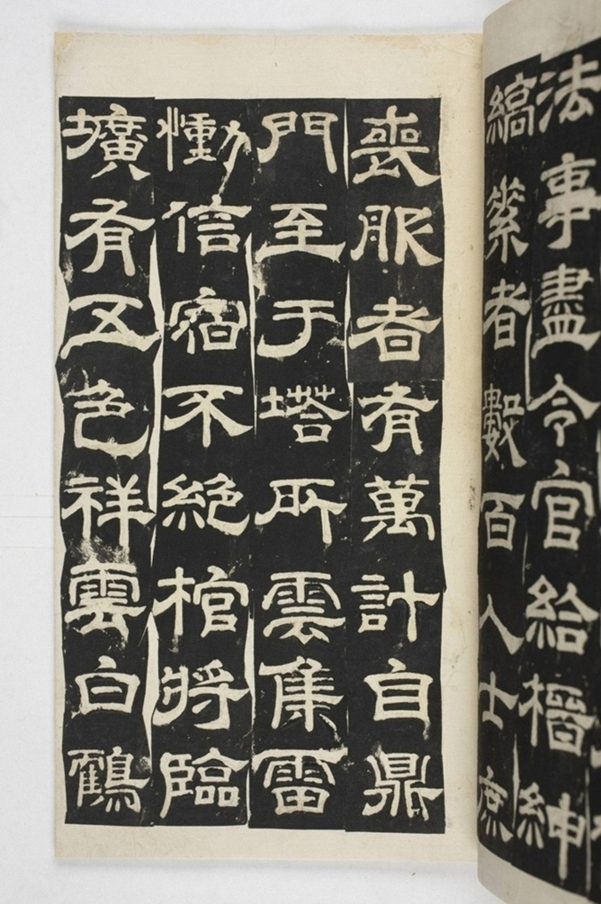 法事盡令官給榗紳
縞素者數百人士庶
喪服者有萬計自鼎
門至于塔所雲集雷
慟信宿不絶棺將臨
壙有五色祥雲白鶴